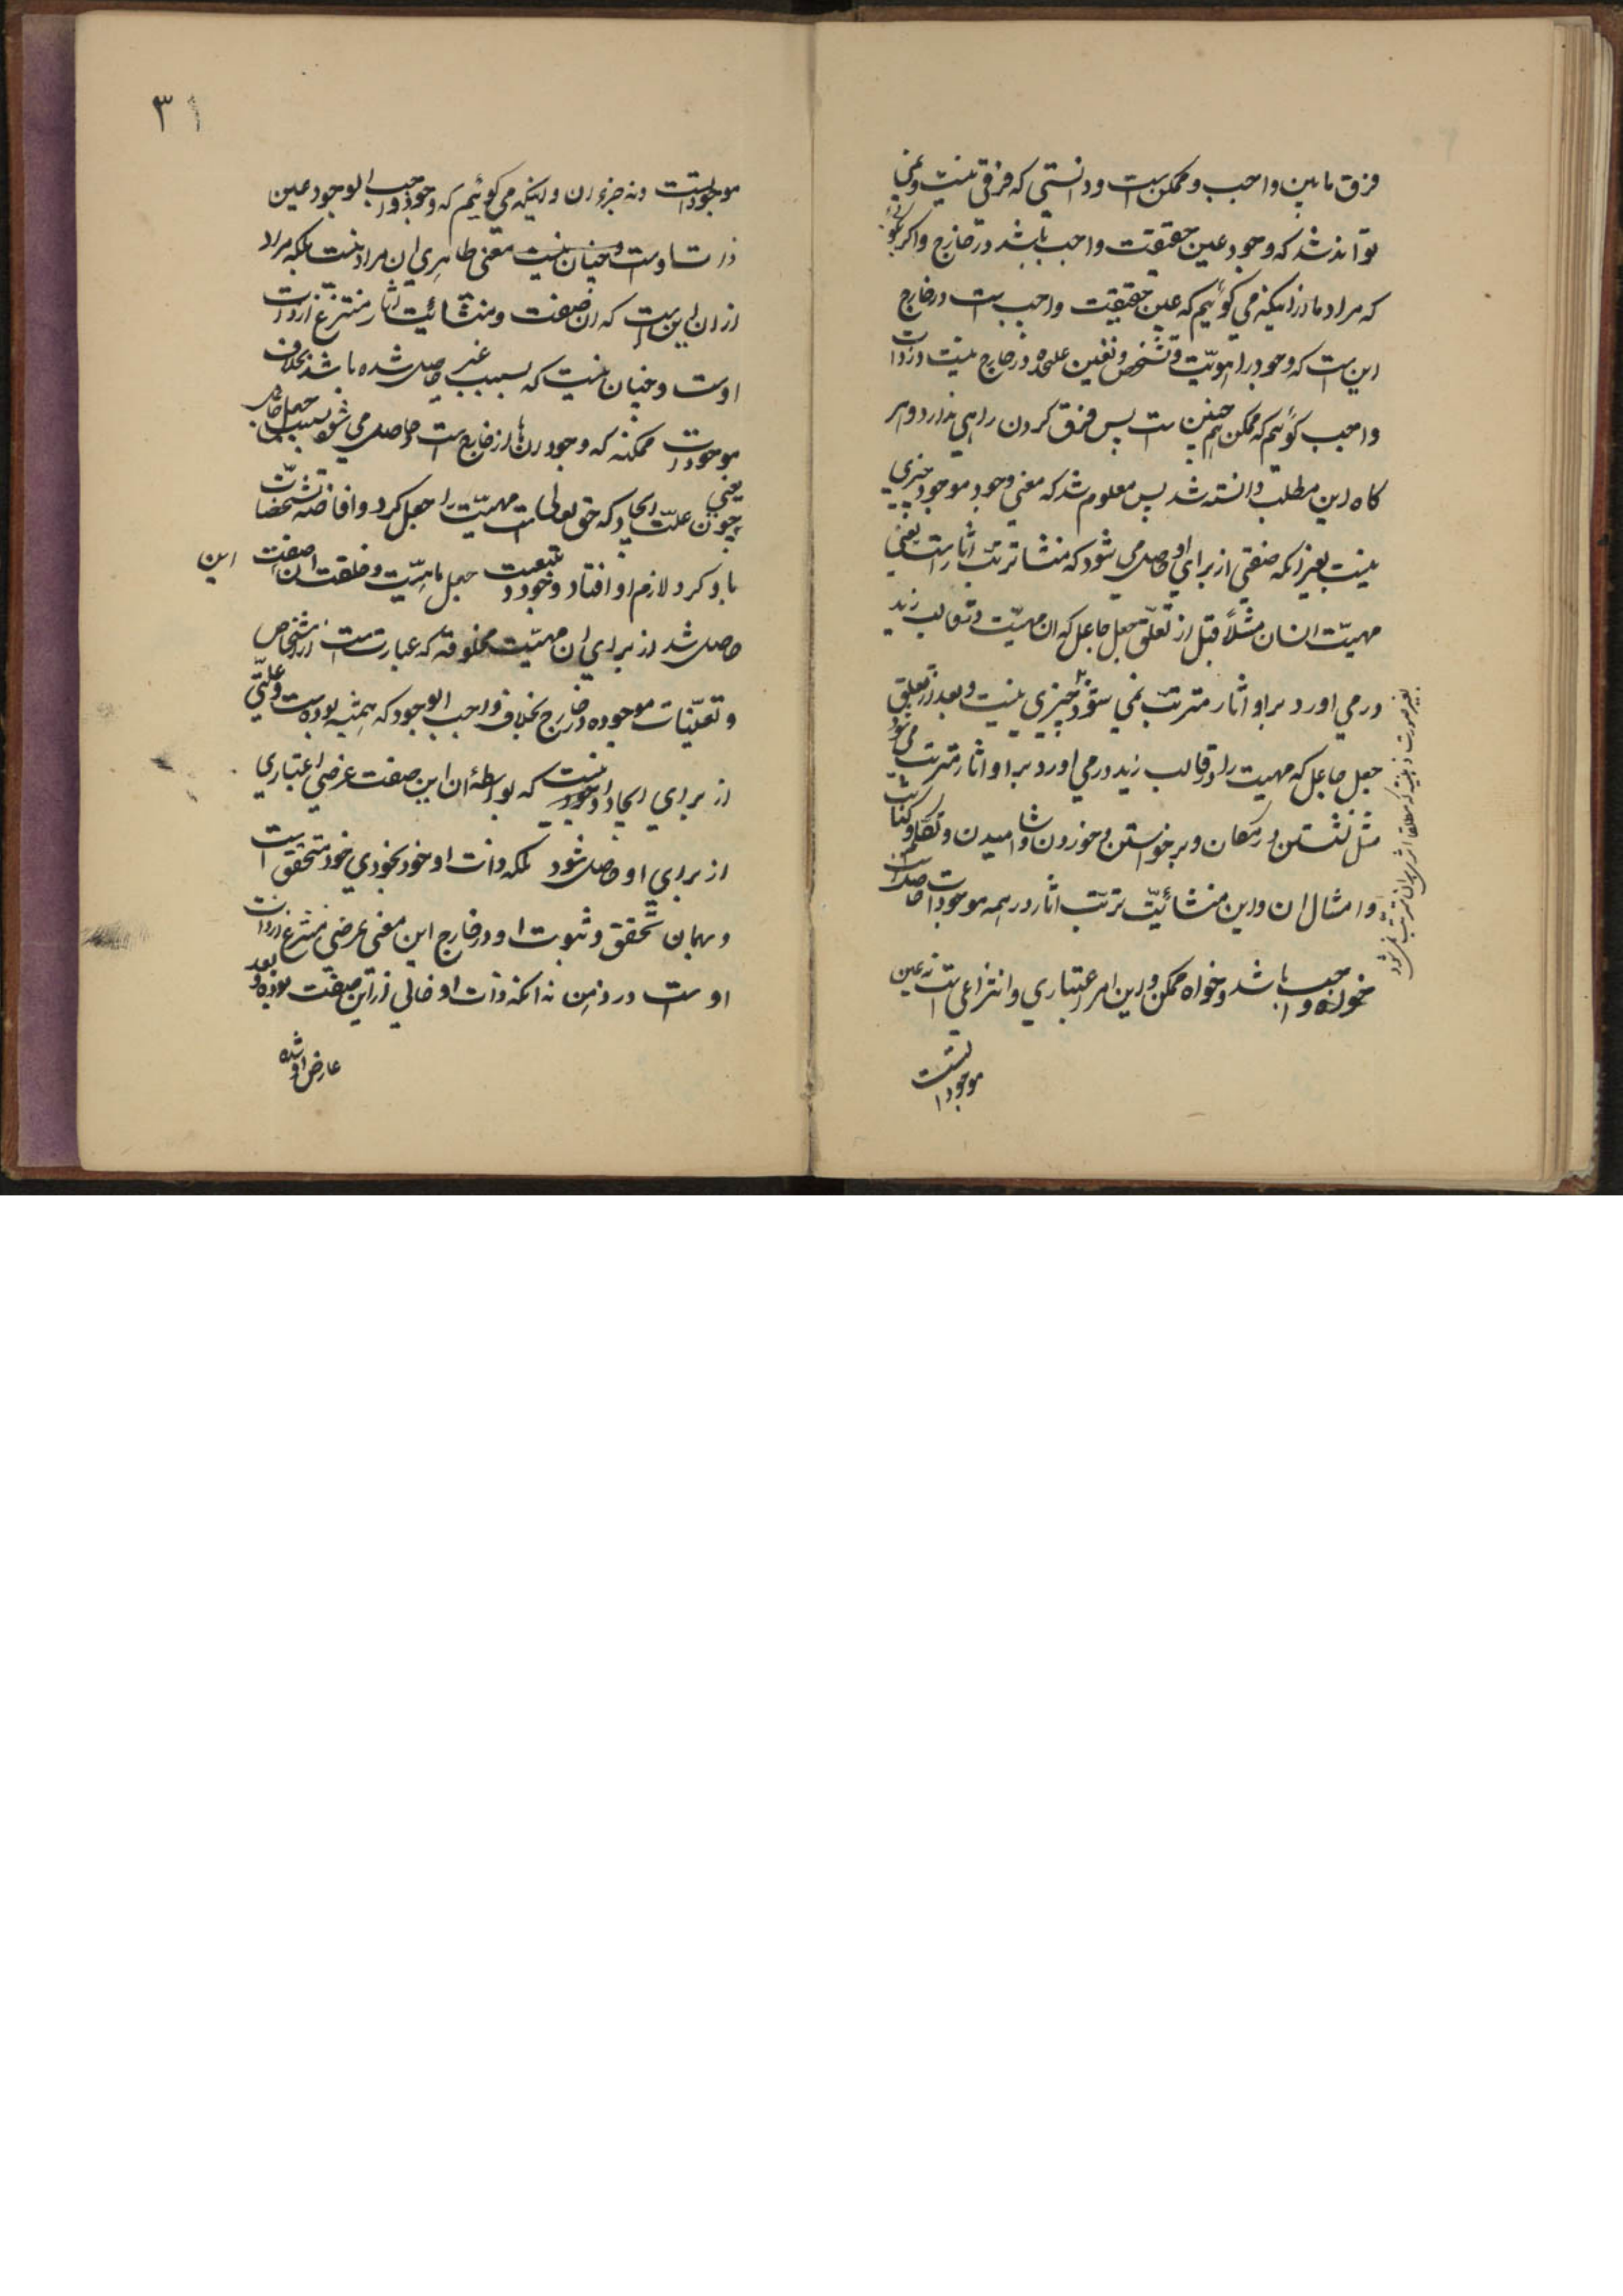 فرق مابین واجب و ممکن است و دانستی که فرقی نیست و نمی
تواند شد که وجود عین حقیقت واجب باشد در خارج و اگر بگوئی
که مراد ما از اینکه می گوئیم که عین حقیقت واجب است در خارج
این است که وجود را هویّت و تشخّص و تعین علیحده در خارج نیست در ذات
واجب گوئیم که ممکن هم چنین است پس فرق کردن راهی ندارد و هر
گاه این مطلب دانسته شد پس معلوم شد که معنی وجود موجود چیزی
نیست بغیر انکه صفتی از برای او حاصل می شود که منشا ترتب اثار است یعنی
مهیّت انسان مثلاً قبل از تعلّق جعل جاعل که ان مهیّت در قالب زید
در می اورد بر او اثار مترتب نمی شود چیزی نیست و بعد از تعلق
جعل جاعل که مهیت را در قالب زید در می اورد بر او اثار مترتب می شود
مثل نشستن در مکان و برخواستن و خوردن و اشامیدن و تکلم و کتابت
و امثال ان و این منشائیّت ترتب اثار در همه موجودات حاصل است
خواه واجب باشد و خواه ممکن و این امر اعتباری و انتزاعی است نه عین
موجود است
بغیر صورت ذهنیه که مطلقا اثر بر ان مترتب نمی شود
۳۱
موجود است و نه جزء ان و اینکه می گوئیم که وجود واجب الوجود عین
ذات اوست و چنان نیست معنی ظاهری ان مراد نیست بلکه مراد
از ان این است که ان صفت و منشائیت اثار منتزع از ذات
اوست و چنان نیست که بسبب غیر حاصل شده باشد بخلاف
موجودات ممکنه که وجود انها از خارج است و حاصل می شود بسبب جعل جاعل
یعنی چون علّت ایجاد که حق تعالی است مهیّت را جعل کرد و افاضه تشخصات
باو کرد لازم او افتاد وجود و بتبعیت جعل ماهیّت و خلقت ان صفت این
حاصل شد از برای ان مهیّت مخلوقه که عبارت است از اشخاص
و تعیّنات موجوده در خارج بخلاف واجب الوجود که همیشه بوده است و علّتی
از برای ایجاد وجود او نیست که بواسطهٔ ان این صفت عرضی اعتباری
از برای او حاصل شود بلکه ذات او خود بخودی خود متحقق است
و بهمان تحقق و ثبوت او در خارج این معنی عرضی منتزع از ذات
اوست در ذهن نه انکه ذات او خالی از این صفت بوده و بعد
عارض او شده